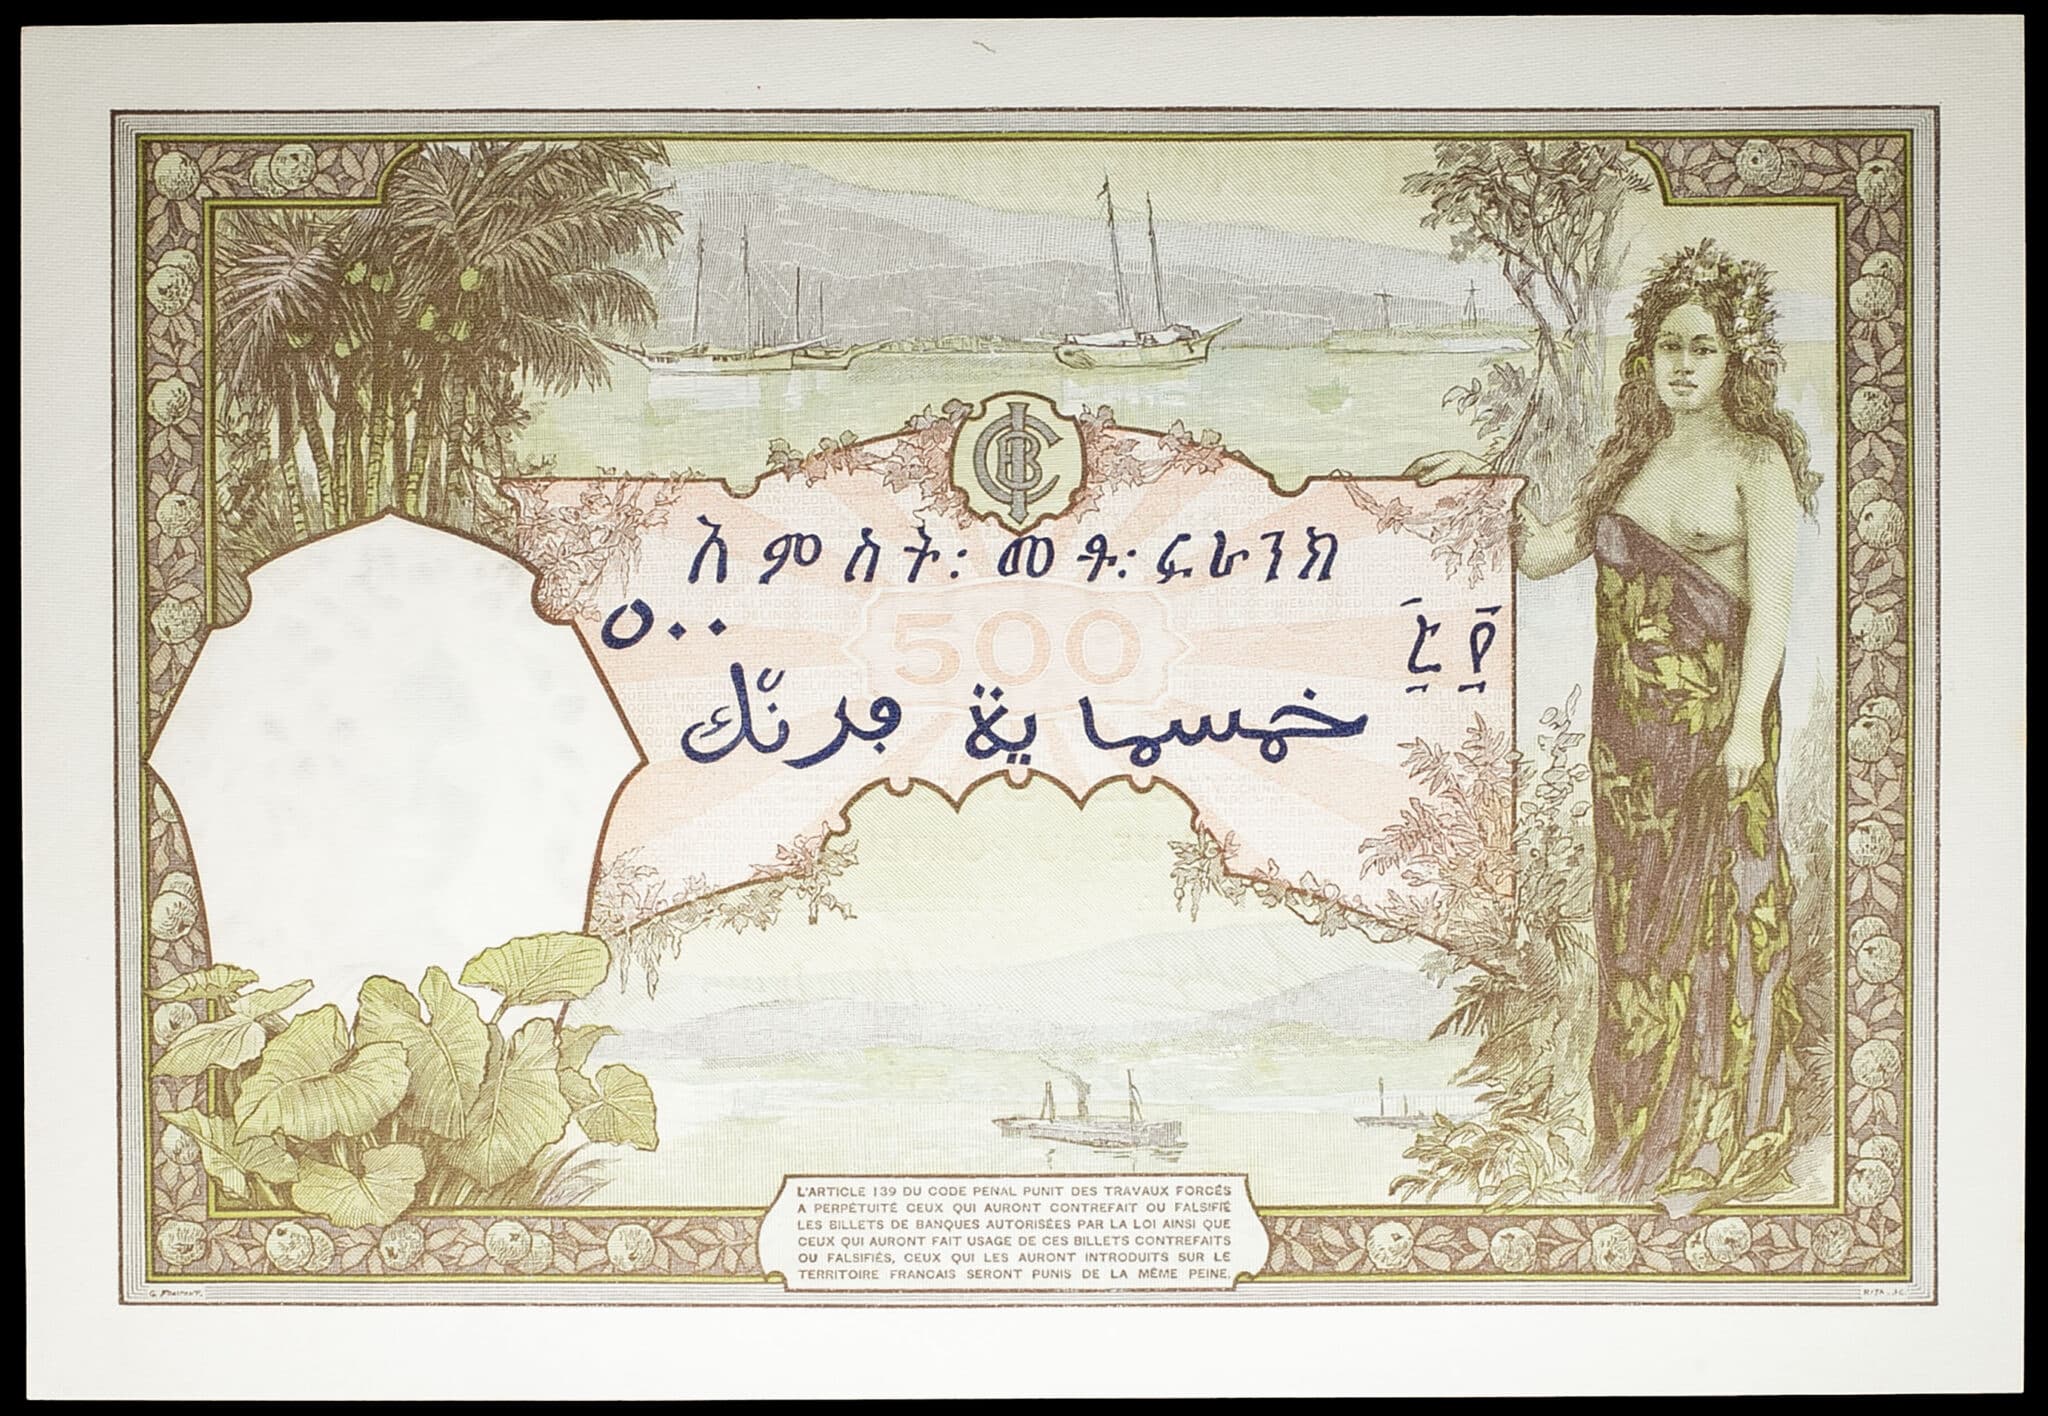 አምስት፡ መቶ፡ ፍራንክ
٥٠٠
500
፭፻
خمسماية ڢرنّك
L'ARTICLE 139 DU CODE PENAL PUNIT DES TRAVAUX FORCÉS
A PERPÉTUITÉ CEUX QUI AURONT CONTREFAIT OU FALSIFIÉ
LES BILLETS DE BANQUES AUTORISÉES PAR LA LOI AINSI QUE
CEUX QUI AURONT FAIT USAGE DE CES BILLETS CONTREFAITS
OU FALSIFIÉS, CEUX QUI LES AURONT INTRODUITS SUR LE
TERRITOIRE FRANCAIS SERONT PUNIS DE LA MÊME PEINE.
G. FRAIPONT.
RITA. SC.